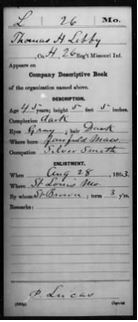 L 26 Mo.
Thomas H Libby
, Co. H, 26 Reg't Missouri Inf.
Appears on
Company Descriptive Book
of the organization named above.
DESCRIPTION.
Age 45 years; height 5 feet 5 inches.
Complexion dark
Eyes Gray; hair Dark
Where born Mass
Occupation Silver Smith
ENLISTMENT.
When Aug 28, 1863.
Where St Louis Mo.
By whom term 3 y'rs.
Remarks:
P. Lucas
Copyist.